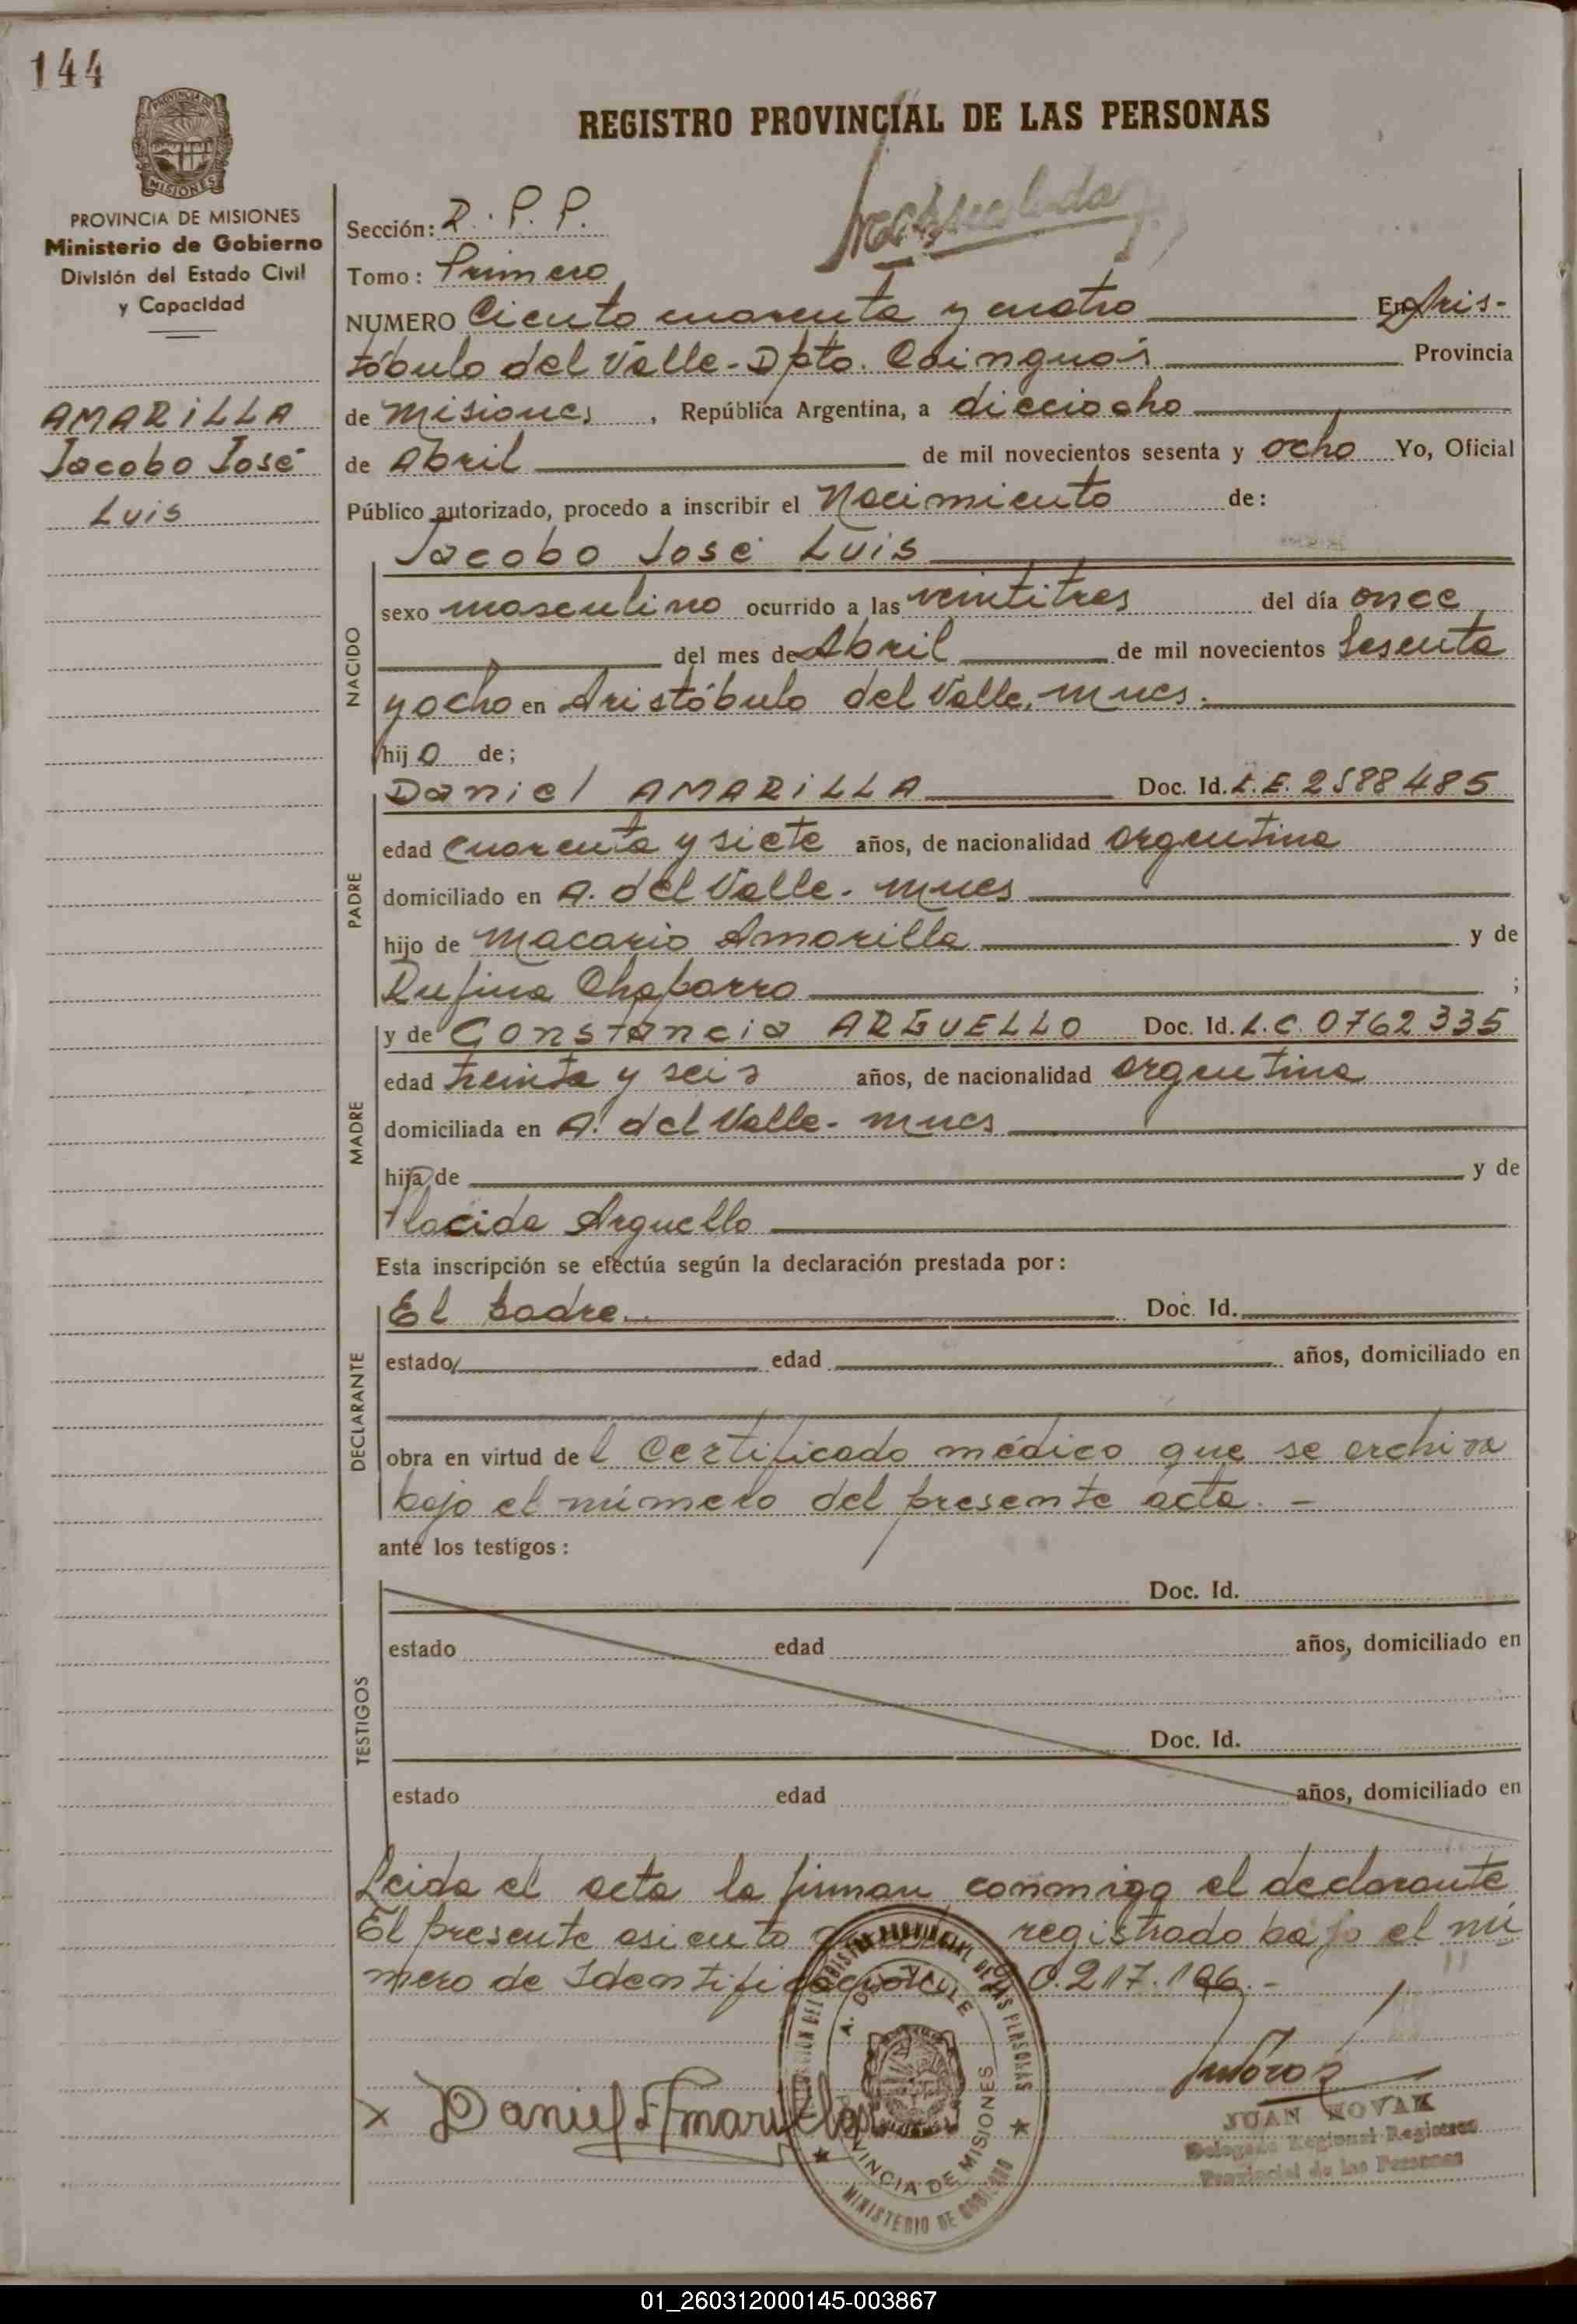 144
REGISTRO PROVINCIAL DE LAS PERSONAS
PROVINCIA DE MISIONES
Ministerio de Gobierno
División del Estado Civil
y Capacidad
AMARILLA
Jacobo José
Luis
Sección: R. P. P.
Tomo: Primero
NUMERO Ciento cuarenta y cuatro En Aris-
tóbulo del Valle - Dpto. Cainguás Provincia
de Misiones, República Argentina, a dieciocho
de Abril de mil novecientos sesenta y ocho Yo, Oficial
Público autorizado, procedo a inscribir el Nacimiento de:
NACIDO
Jacobo José Luis
sexo masculino ocurrido a las veintitres del día once
del mes de Abril de mil novecientos Sesenta
y ocho en Aristóbulo del Valle, Mnes.
hijo de;
PADRE
Daniel AMARILLA Doc. Id. L.E. 2588485
edad cuarenta y siete años, de nacionalidad argentina
domiciliado en A. del Valle - Mnes
hijo de Macario Amarilla y de
Rufina Chaparro ;
MADRE
y de Constancia ARGUELLO Doc. Id. L.C. 0762335
edad treinta y seis años, de nacionalidad argentina
domiciliada en A. del Valle - Mnes
hija de y de
Placida Arguello
Esta inscripción se efectúa según la declaración prestada por:
DECLARANTE
El padre Doc. Id.
estado edad años, domiciliado en
obra en virtud del Certificado médico que se archiva
bajo el número del presente acta. -
ante los testigos:
TESTIGOS
Doc. Id.
estado edad años, domiciliado en
Doc. Id.
estado edad años, domiciliado en
Leida el acta la firman conmigo el declarante
El presente asiento registrado bajo el nú
mero de Identificación 20.217.196.-
Daniel Amarilla
A. DEL VALLE
PROVINCIA DE MISIONES
MINISTERIO DE GOBIERNO
JUAN NOVAK
Delegado Regional Registro
Provincial de las Personas
01_260312000145-003867